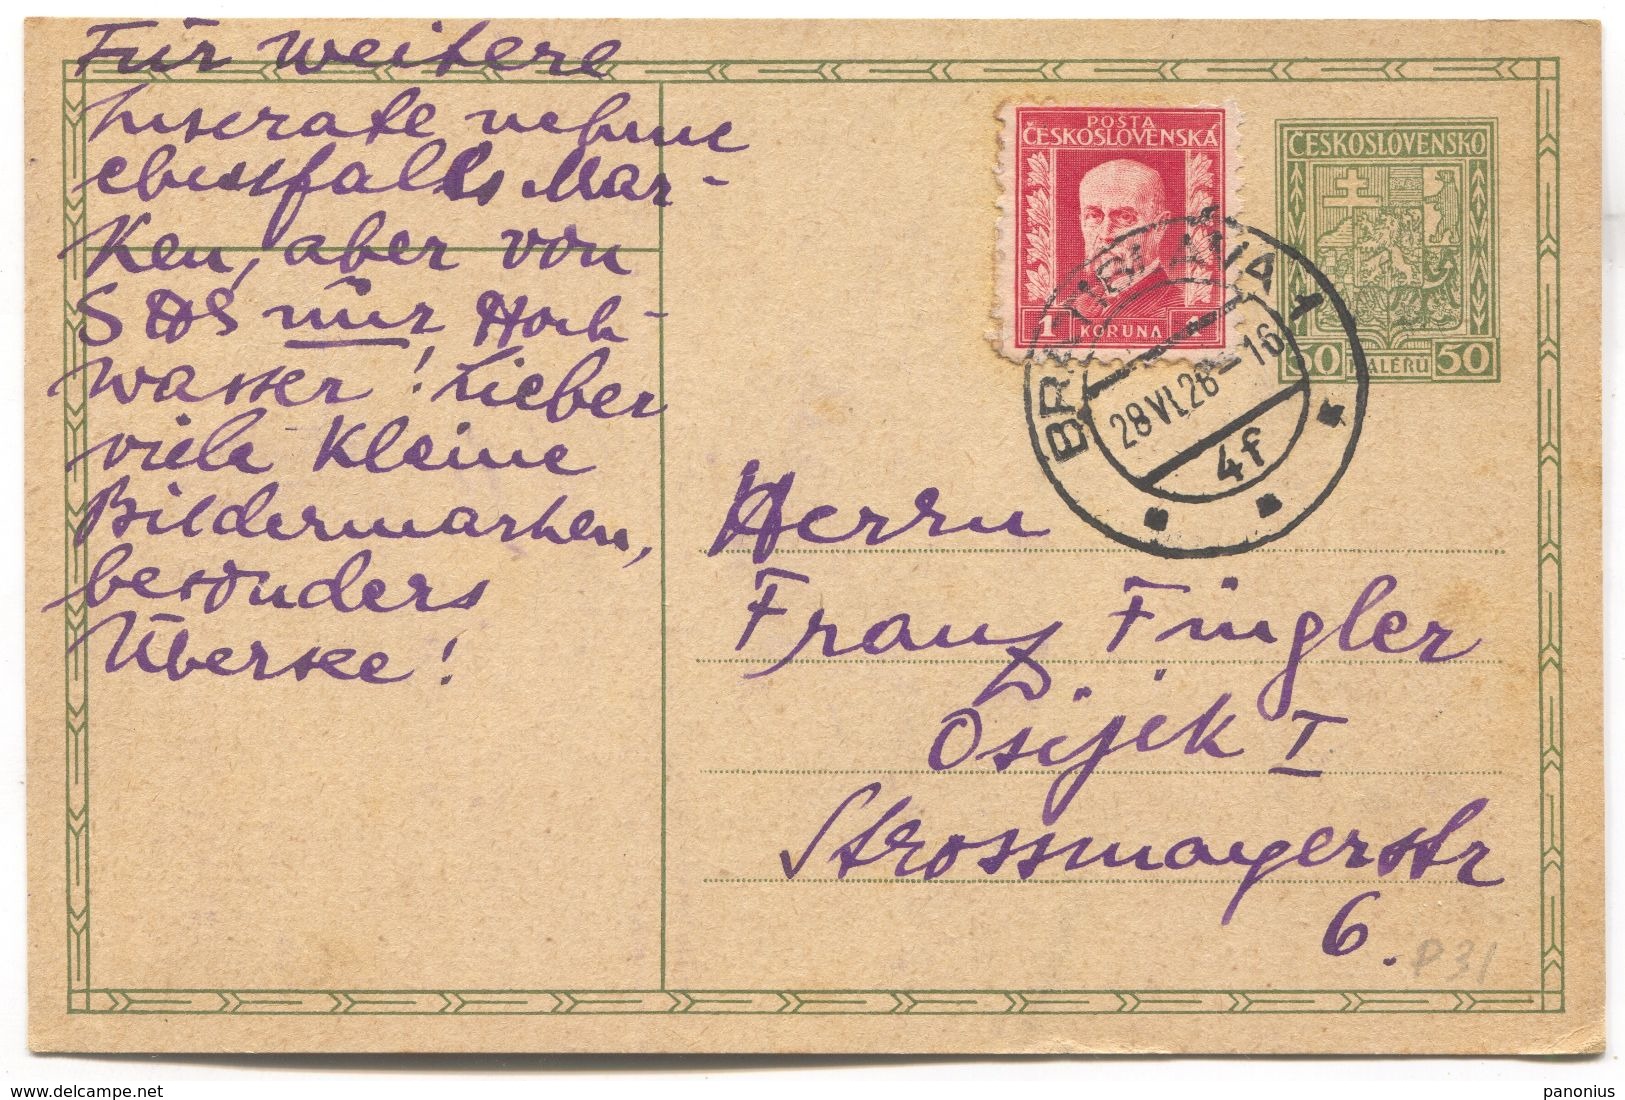 Für weitere
Inserate nehme
ebenfalls Mar-
ken, aber von
SHS nur Hoch-
wasser! Lieber
viele kleine
Bildermarken,
besonders
Übersee!
POŠTA
ČESKOSLOVENSKÁ
1 KORUNA 1
ČESKOSLOVENSKO
50 HALERŮ 50
BRATISLAVA 1
28.VI.28-16
4f
Herrn
Franz Fingler
Osijek I
Strossmayerstr
6.
P31
panonius
www.delcampe.net